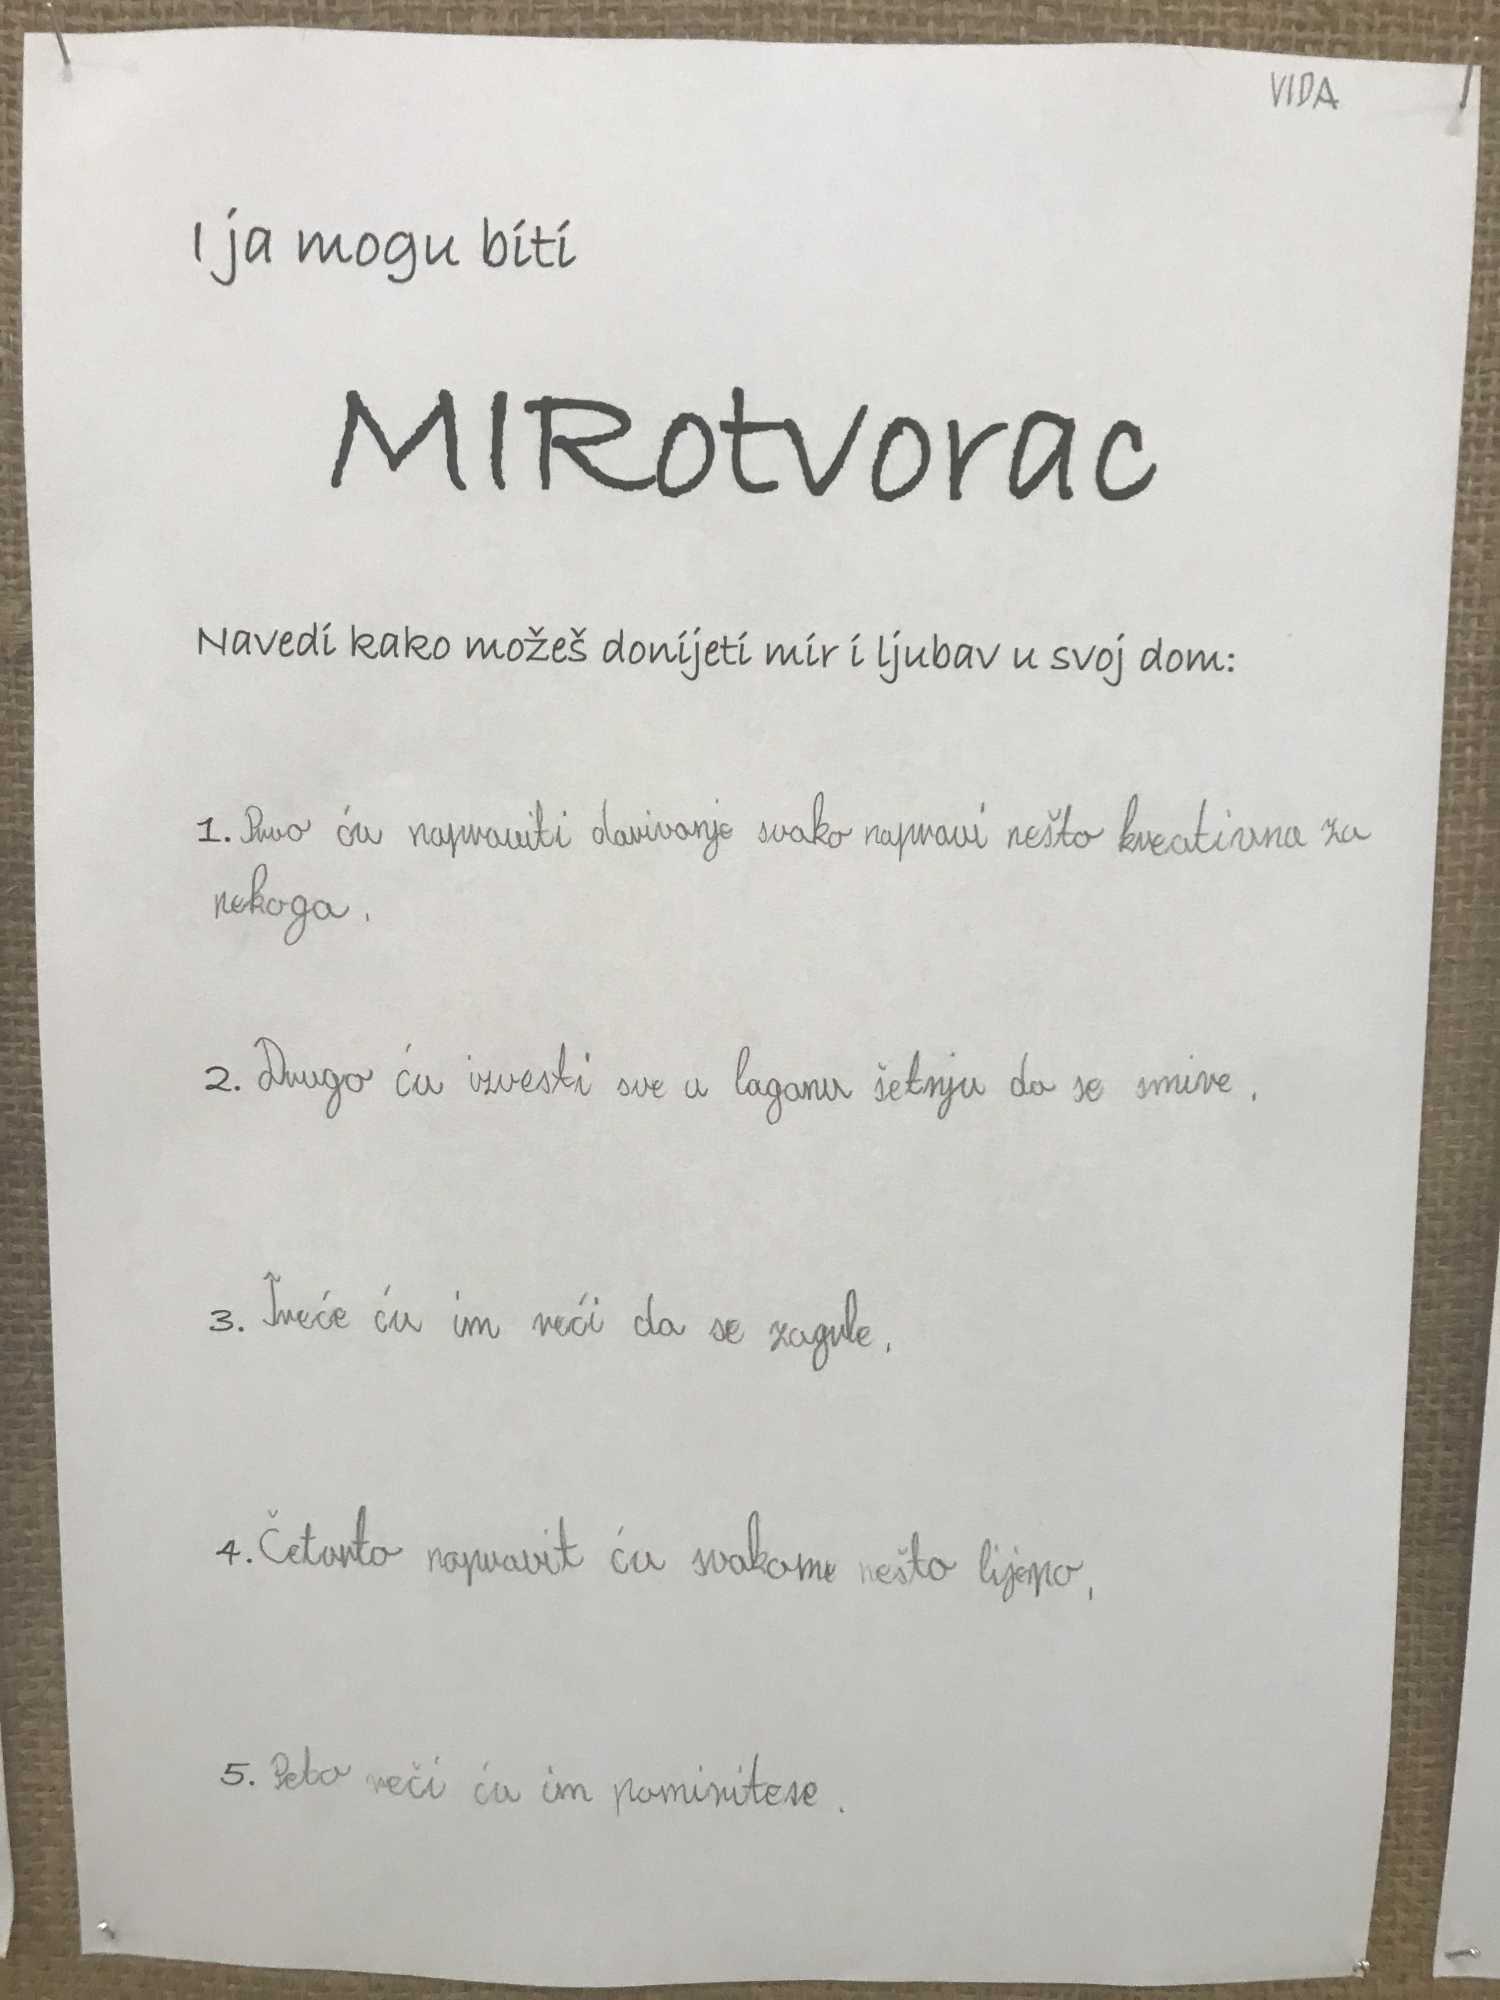 VIDA
I ja mogu biti
MIRotvorac
Navedi kako možeš donijeti mir i ljubav u svoj dom:
1. Prvo ću napraviti darivanje svako napravi nešto kreativna za
nekoga.
2. Drugo ću izvesti sve u laganu šetnju da se smire.
3. Treće ću im reći da se zagrle.
4. Četvrto napravit ću svakome nešto lijepo.
5. Peto reči ću im pomiritese.